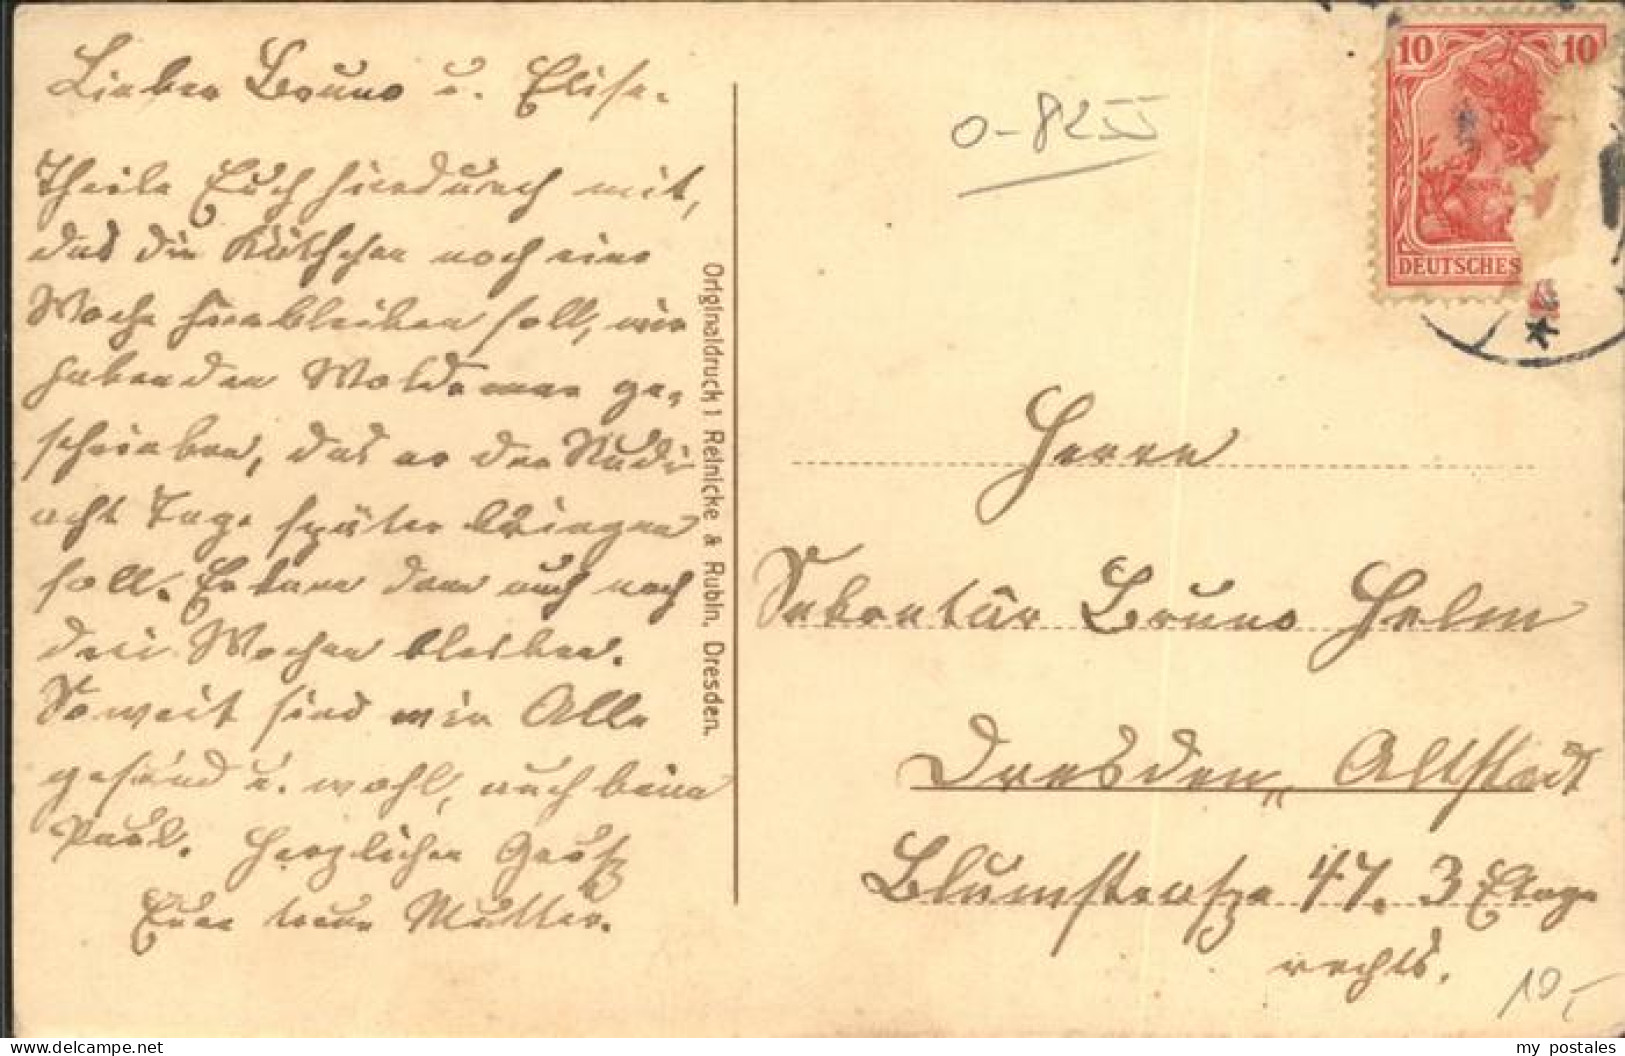 Lieber Bruno u. Elise.
Theile Euch hierdurch mit,
das die Käthchen noch eine
Woche hierbleiben soll, wir
haben den Woldemar ge-
schrieben, das er den Rudi
acht Tage später bringen
soll. Er kann dann auch noch
drei Wochen bleiben.
Soweit sind wir Alle
gesund u. wohl, auch beim
Paul. Herzlichen Gruß
Eure treue Mutter.
Originaldruck | Reinicke & Rubin, Dresden.
0-82II
10 10
DEUTSCHES
Herrn
Sekretär Bruno Helm
Dresden, Altstadt
Blumstraße 47. 3 Etage
rechts.
10,-
my postales